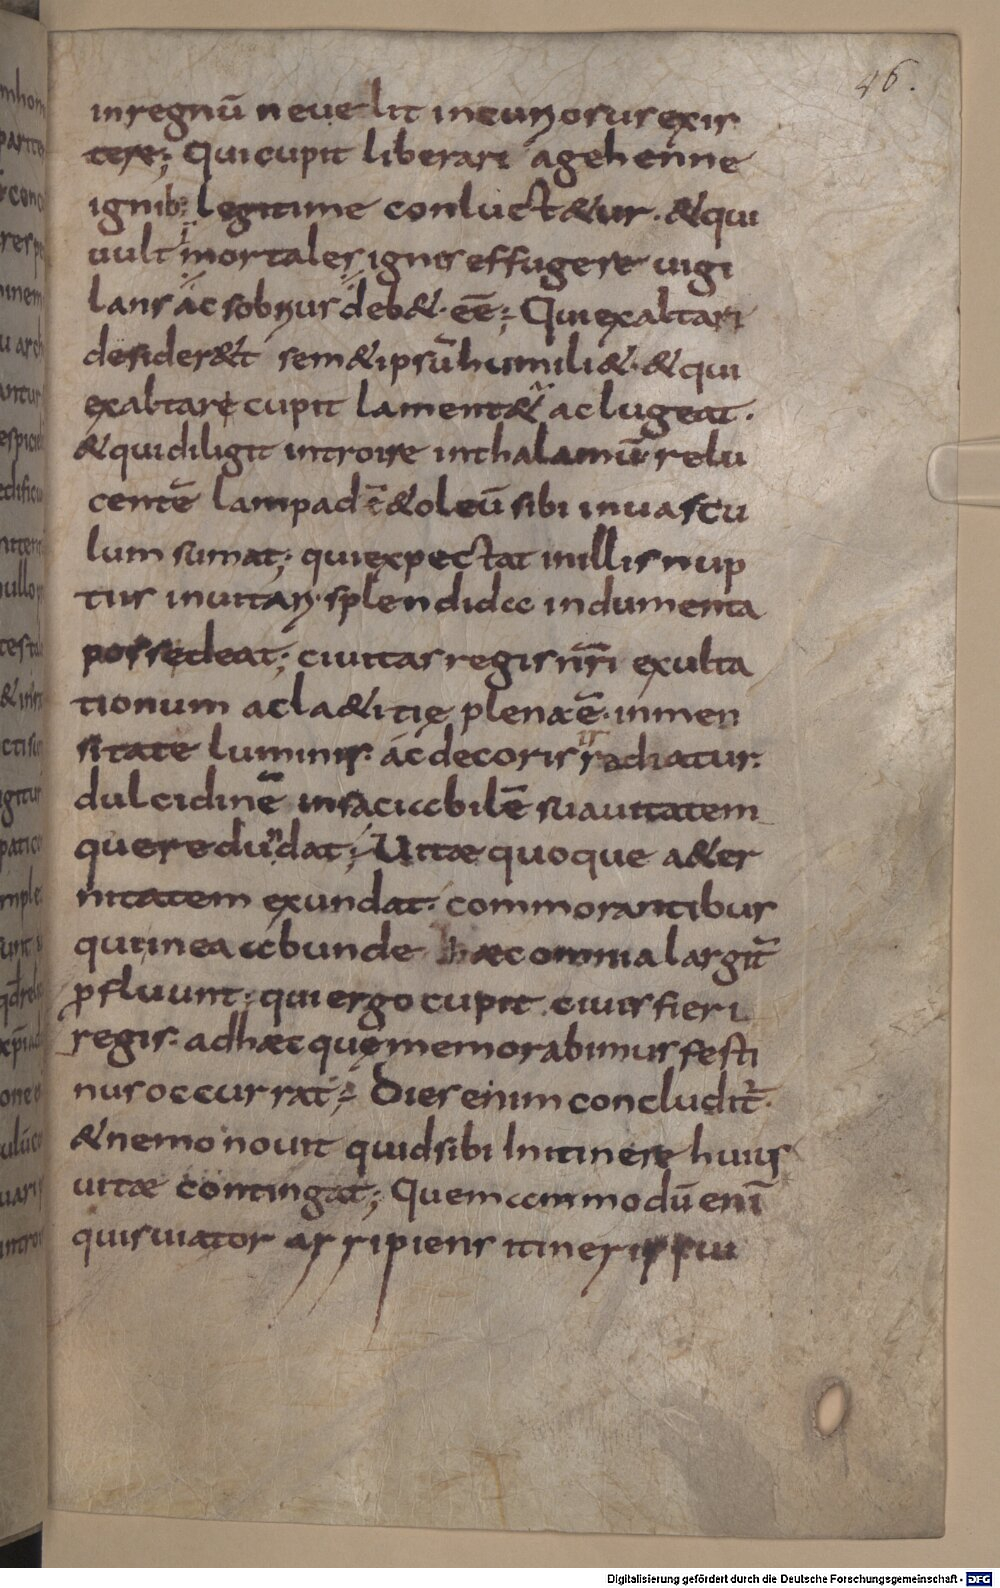 46.
in regnū neuelit incuriosus exis
tere; Qui cupit liberari agehenne
ignib; legitime conluct&ur. &qui
uult mortales ignis effugere uigi
lans ac sobrius deb& eē; Qui exaltari
desider&t sem&ipsū humili& &qui
exaltare cupit lament& ac lugeat.
&qui diligit introire inthalamū relu
centē lampadē &oleū sibi inuascu
lum sumat; qui expectat inillis nup
tiis inuitari splendida indumenta
possedeat; ciuitas regis nr̄i exulta
tionum ac la&itię plena ē inmen
sitate luminis ac decoris irradiatur.
dulcidinē insaciabilē suauitatem
que redundat; Uitae quoque a&er
nitatem exundat. commorantibus
qui in ea abunde haec omnia largit̄
p̄fluunt; qui ergo cupit ciuis fieri
regis. adhaec quę memorabimus festi
nus occurrat; Dies enim concludit̄.
&nemo nouit quid sibi In itinere huius
uitae contingat; Quem ammodū enī
quis uiator arripiens itineris sui
Digitalisierung gefördert durch die Deutsche Forschungsgemeinschaft - DFG